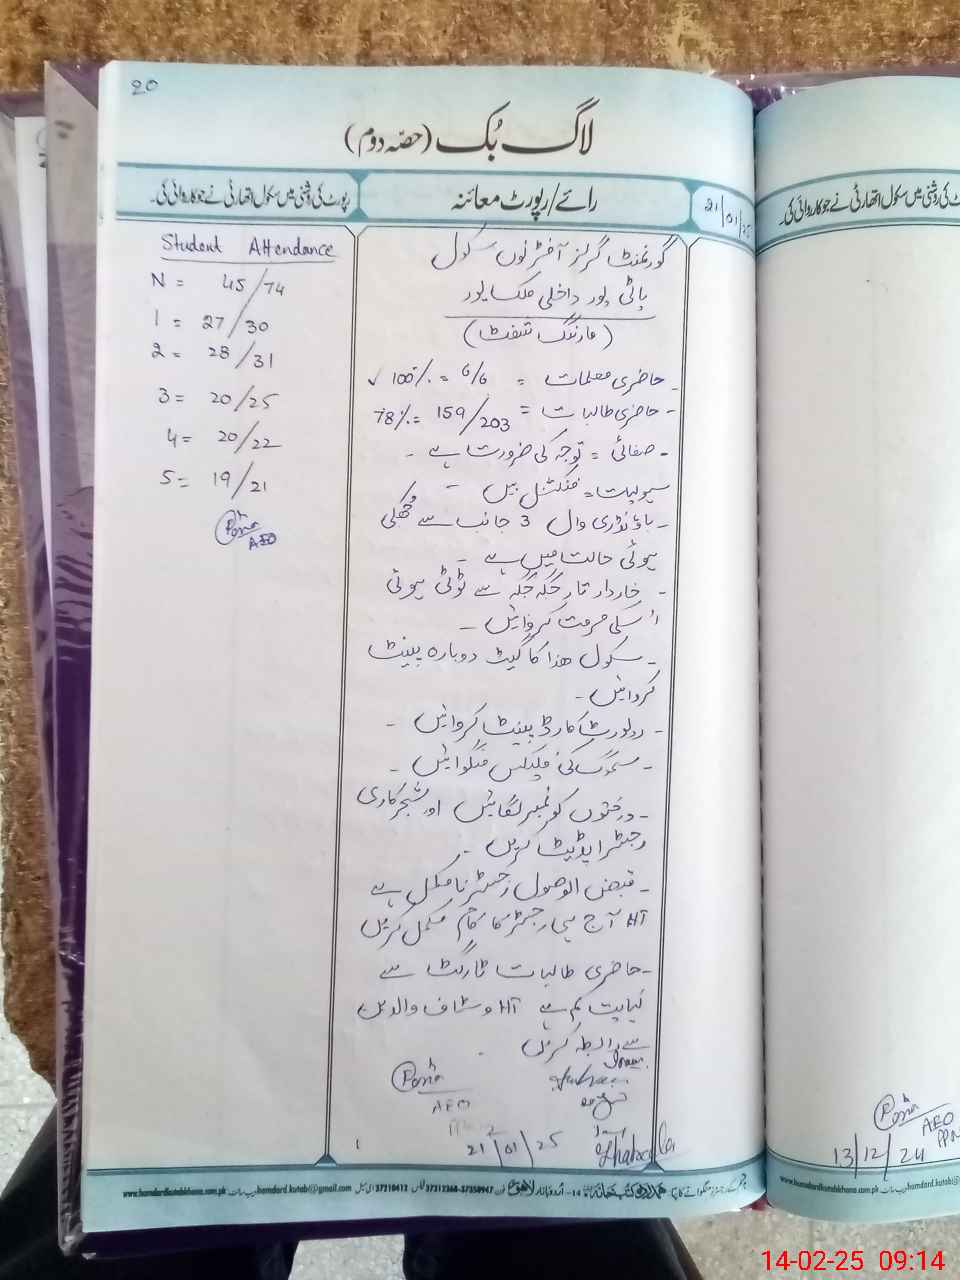 20
لاگ بُک (حصّہ دوم)
21/01/25
رائے/رپورٹ معائنہ
رپورٹ کی روشنی میں سکول اتھارٹی نے جو کارروائی کی۔
گورنمنٹ گرلز آفٹرنون سکول
پاٹی پور داخلی ملکسا پور
(مارننگ شفٹ)
- حاضری معلمات = 6/6 = 100% ✓
- حاضری طالبات = 159/203 = 78%
- صفائی = توجہ کی ضرورت ہے -
سہولیات = فنکشنل ہیں -
- باؤنڈری وال 3 جانب سے کُھلی
ہوئی حالت میں ہے -
- خاردار تار جگہ جگہ سے ٹوٹی ہوئی
اُسکی مرمت کروائیں -
- سکول ھذا کا گیٹ دوبارہ پینٹ
کروائیں -
- رپورٹ کارڈ پینٹ کروائیں -
- سموگ کی فلیکس منگوائیں -
- درختوں کو نمبر لگائیں اور شجرکاری
رجسٹر اپڈیٹ کریں -
- قبض الوصول رجسٹر نامکمل ہے
HT آج ہی رجسٹر کا کام مکمل کریں
- حاضری طالبات ٹارگٹ سے
نہایت کم ہے HT و سٹاف والدین
سے رابطہ کریں -
AEO
21/01/25
Student Attendance
N = 45/74
1 = 27/30
2 = 28/31
3 = 20/25
4 = 20/22
5 = 19/21
AEO
سکول اتھارٹی نے جو کارروائی کی۔
AEO
13/12/24
www.hamdardkutabkhana.com.pk ویب سائٹ hamdard.kutab@gmail.com ای میل 37210412 فیکس 37312368-37350947 فون
www.hamdardkutabkhana.com.pk
14-02-25 09:14